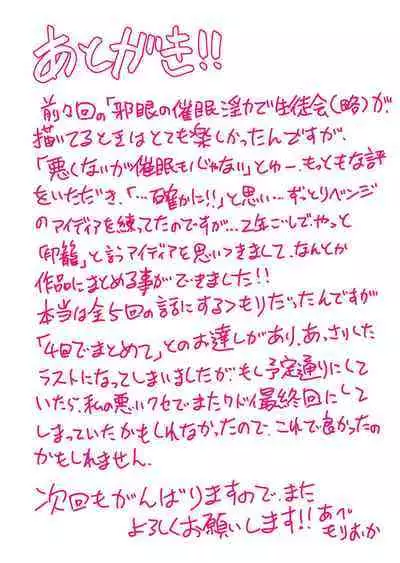 あとがき!!
前々回の「邪眼の催眠淫力で生徒会(略)が、
描いてるときはとても楽しかったんですが、
「悪くないが催眠もじゃない」とゆー、もっともな評
をいただき、「…確かに!!」と思い…ずっとリベンジ
のアイディアを練ってたのですが…2年ごしで、やっと
「印籠」と言うアイディアを思いつきまして、なんとか
作品にまとめる事ができました!!
本当は全5回の話にするつもりだったんですが
「4回でまとめて」とのお達しがあり、あっさりした
ラストになってしまいましたが、もし予定通りにして
いたら、私の悪いクセでまたクドイ最終回にして
しまっていたかもしれなかったので、これで良かったの
かもしれません。
次回もがんばりますので、また
よろしくお願いします!! あべ
もりおか